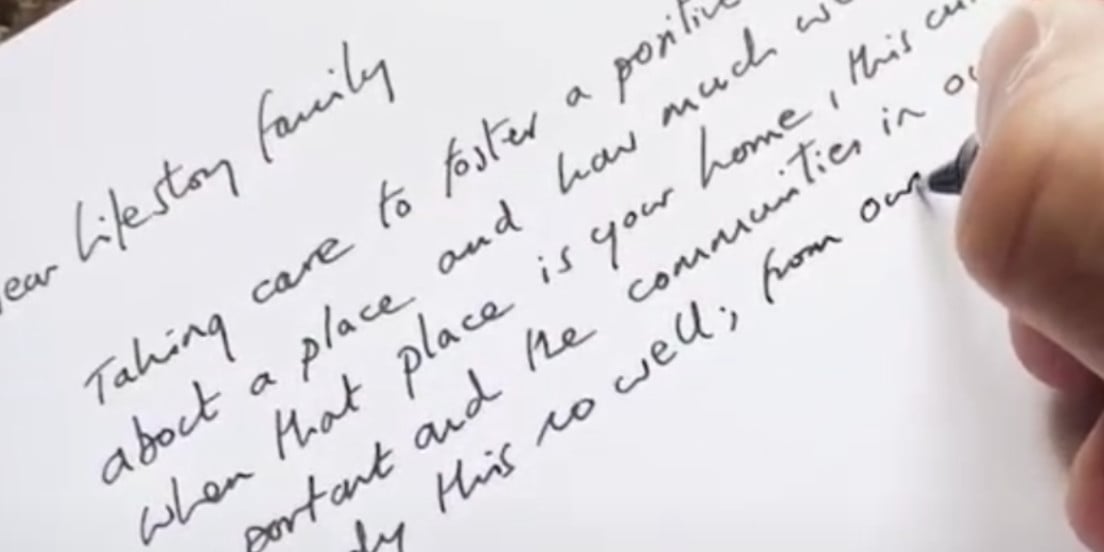 Dear Lifestory family
Taking care to foster a positive
about a place and how much we
when that place is your home, this
portant and the communities in our
this so well; from our